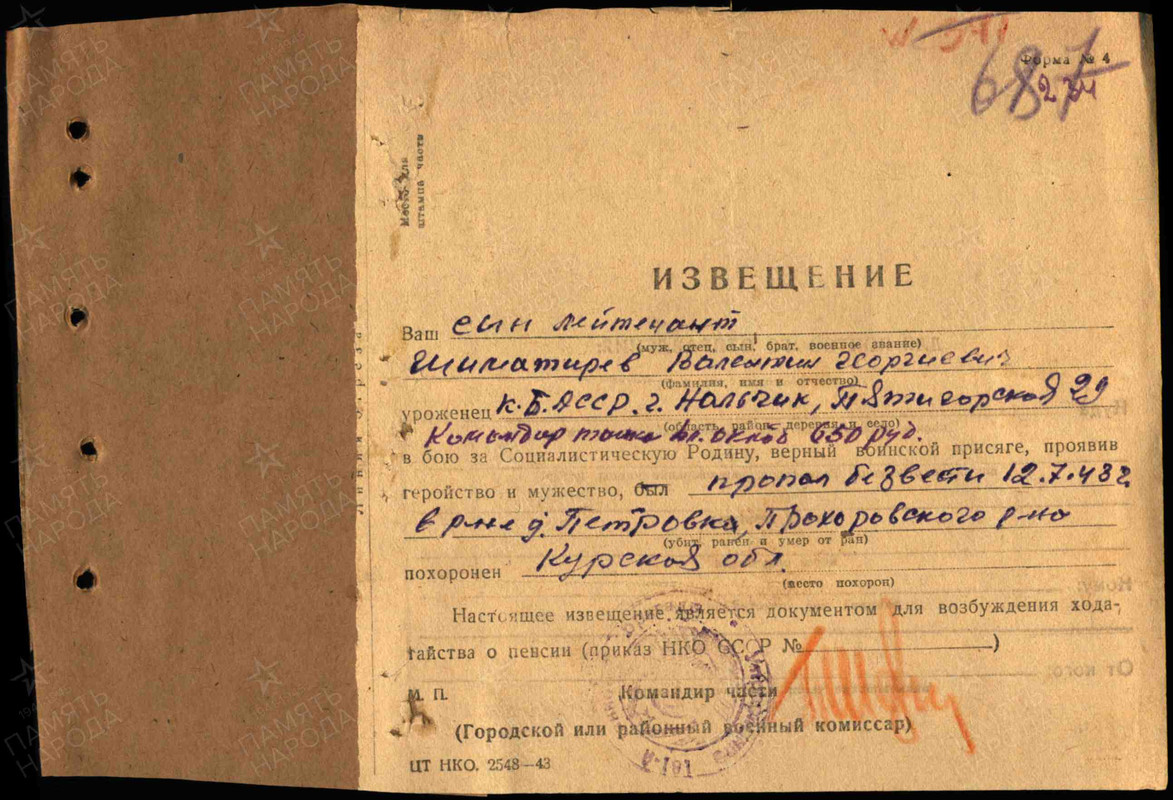 Форма № 4
687
274
Место для
штампа части
ИЗВЕЩЕНИЕ
Ваш сын лейтенант
(муж, отец, сын, брат, военное звание)
Шиматирев Валентин Георгиевич
(фамилия, имя и отчество)
уроженец К.Б.АССР. г. Нальчик, Пятигорская 29
(область, район, деревня и село)
Командир танка 650 руб.
в бою за Социалистическую Родину, верный воинской присяге, проявив
геройство и мужество, был пропал без вести 12.7.43г.
в р-не д. Петровка, Прохоровского р-на
(убит, ранен и умер от ран)
похоронен Курская обл.
(место похорон)
Настоящее извещение является документом для возбуждения хода-
тайства о пенсии (приказ НКО СССР № )
М. П. Командир части
(Городской или районный военный комиссар)
ЦТ НКО. 2548—43
Линия отреза
Куда
Кому:
От кого:
ПАМЯТЬ
НАРОДА